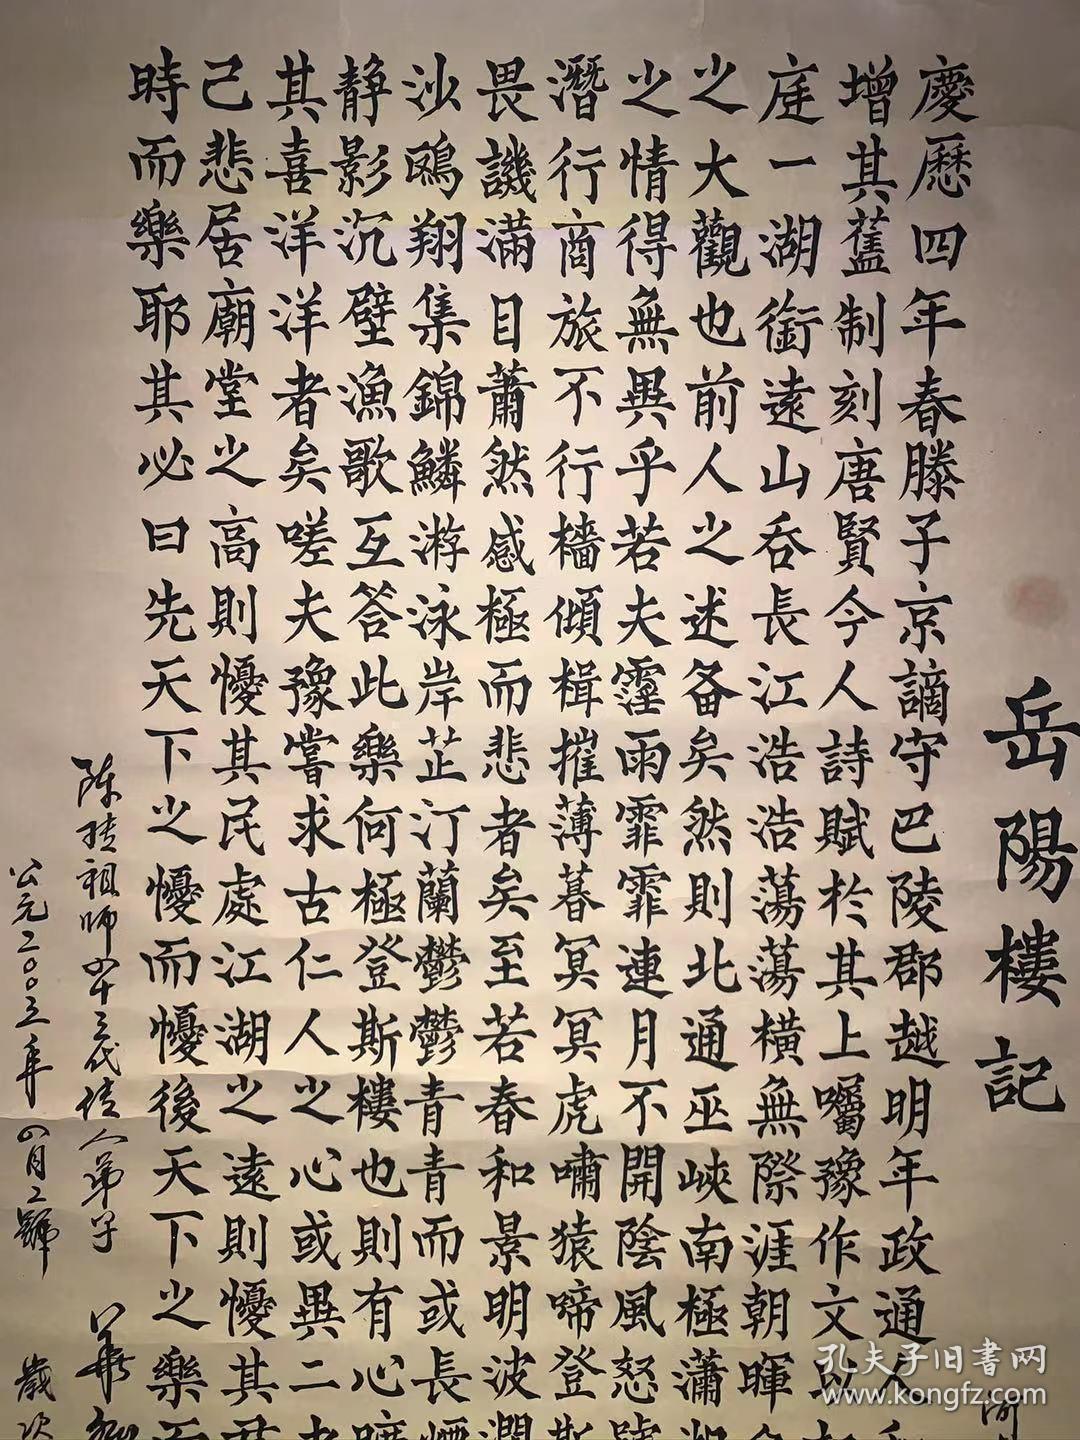 岳陽樓記
慶歷四年春滕子京謫守巴陵郡越明年政通人和
增其舊制刻唐賢今人詩賦於其上囑豫作文以
庭一湖銜遠山吞長江浩浩蕩蕩橫無際涯朝暉
之大觀也前人之述备矣然則北通巫峽南極瀟湘
之情得無異乎若夫霪雨霏霏連月不開陰風怒號
潛行商旅不行檣傾楫摧薄暮冥冥虎嘯猿啼登斯
畏譏滿目蕭然感極而悲者矣至若春和景明波瀾
沙鷗翔集錦鱗游泳岸芷汀蘭鬱鬱青青而或長煙
静影沉壁漁歌互答此樂何極登斯樓也則有心曠
其喜洋洋者矣嗟夫豫嘗求古仁人之心或異二者
己悲居廟堂之高則懮其民處江湖之遠則懮其君
時而樂耶其必曰先天下之懮而懮後天下之樂而
陈抟祖師四十三代传人弟子
公元二〇〇三年 四月二號 歲次
孔夫子旧书网
www.kongfz.com